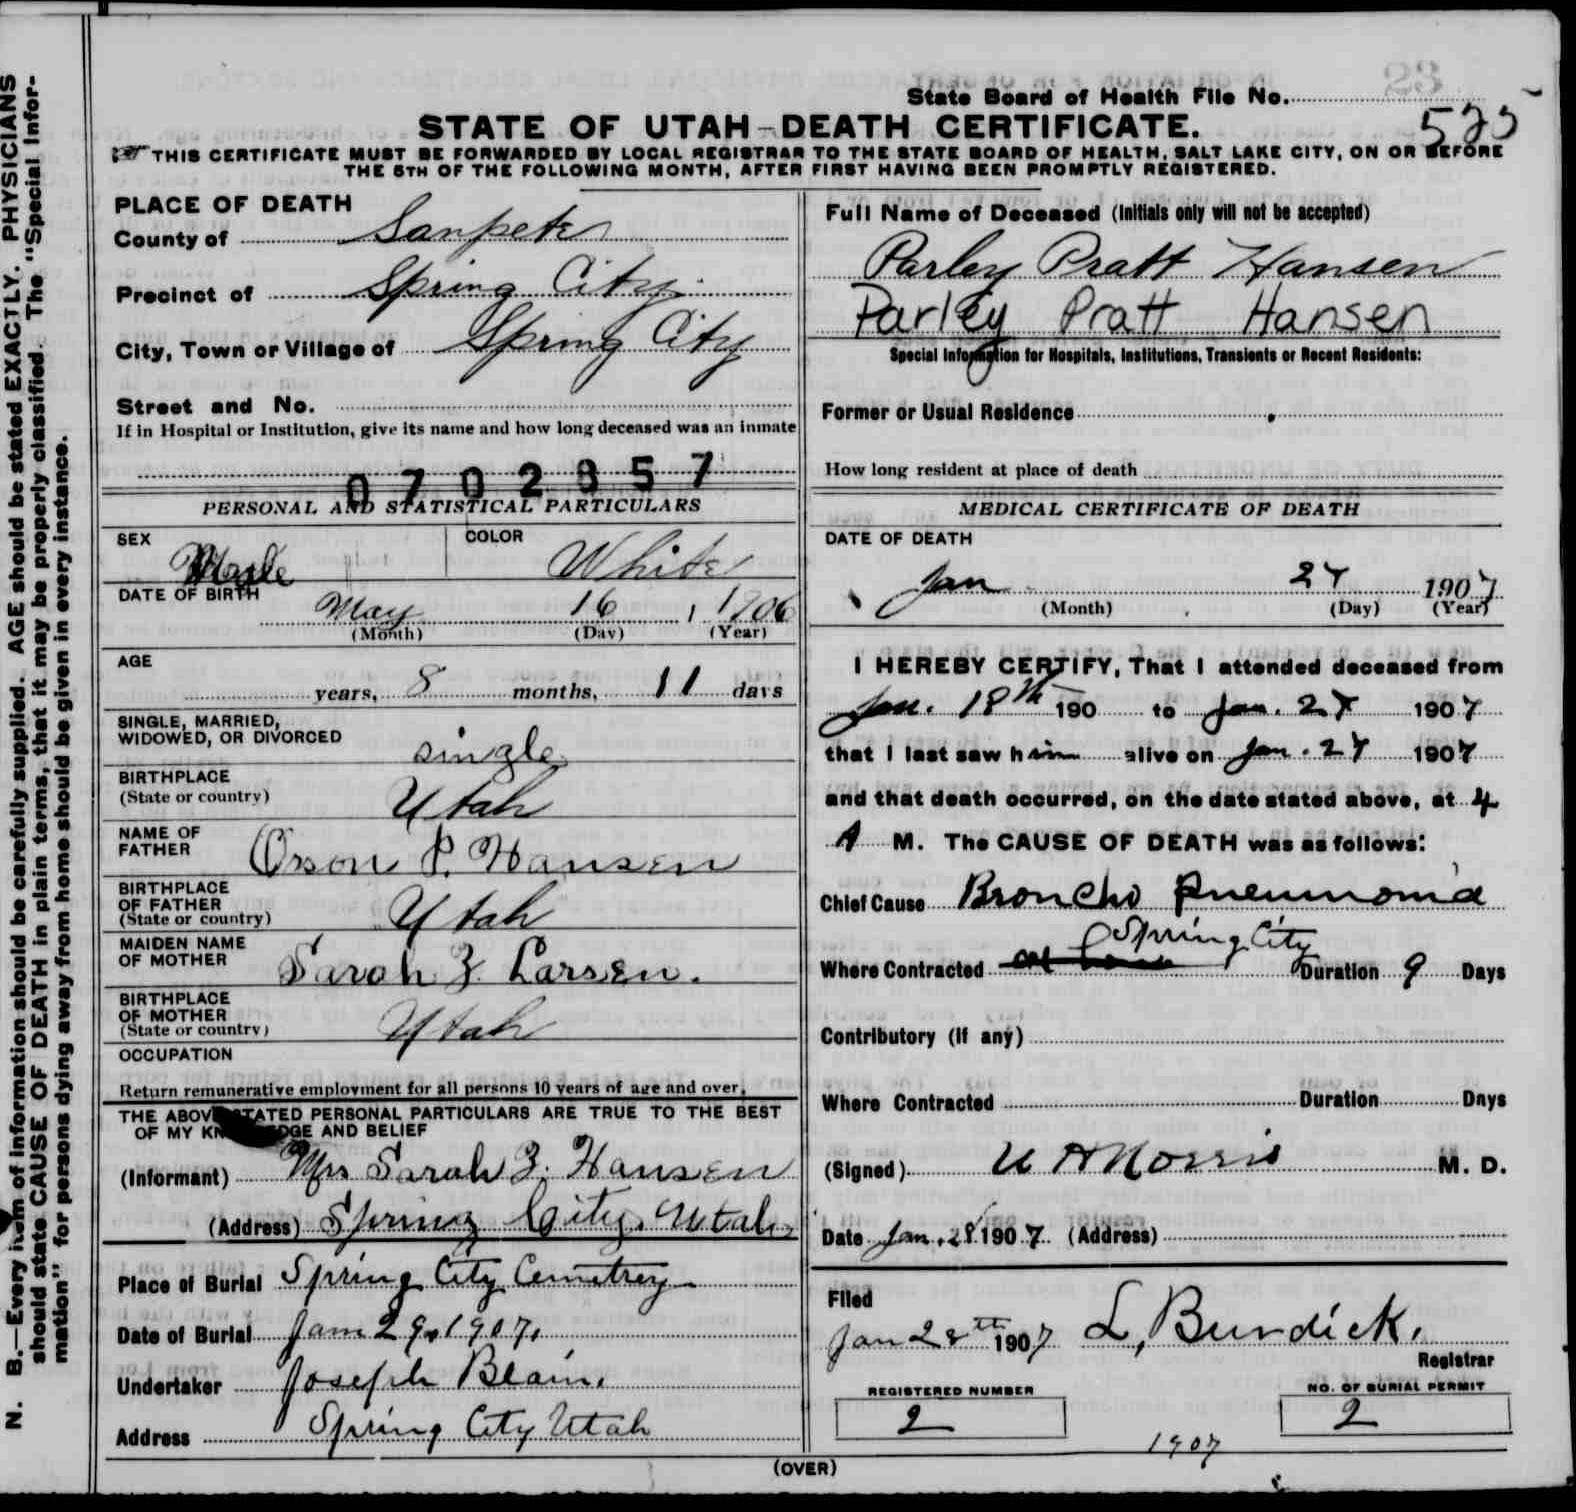 N. B.—Every item of information should be carefully supplied. AGE should be stated EXACTLY. PHYSICIANS
should state CAUSE OF DEATH in plain terms, that it may be properly classified. The "Special Infor-
mation" for persons dying away from home should be given in every instance.
23
State Board of Health File No.
525
STATE OF UTAH—DEATH CERTIFICATE.
☞ THIS CERTIFICATE MUST BE FORWARDED BY LOCAL REGISTRAR TO THE STATE BOARD OF HEALTH, SALT LAKE CITY, ON OR BEFORE
THE 5TH OF THE FOLLOWING MONTH, AFTER FIRST HAVING BEEN PROMPTLY REGISTERED.
PLACE OF DEATH
County of Sanpete
Precinct of Spring City
City, Town or Village of Spring City
Street and No.
If in Hospital or Institution, give its name and how long deceased was an inmate
0702857
PERSONAL AND STATISTICAL PARTICULARS
SEX Male COLOR White
DATE OF BIRTH
May 16, 1906
(Month) (Day) (Year)
AGE
years, 8 months, 11 days
SINGLE, MARRIED,
WIDOWED, OR DIVORCED single
BIRTHPLACE
(State or country) Utah
NAME OF
FATHER Orson P. Hansen
BIRTHPLACE
OF FATHER
(State or country) Utah
MAIDEN NAME
OF MOTHER Sarah Z. Larsen.
BIRTHPLACE
OF MOTHER
(State or country) Utah
OCCUPATION
Return remunerative employment for all persons 10 years of age and over.
THE ABOVE STATED PERSONAL PARTICULARS ARE TRUE TO THE BEST
OF MY KNOWLEDGE AND BELIEF
(Informant) Mrs Sarah Z. Hansen
(Address) Spring City, Utah
Place of Burial Spring City Cemetrey
Date of Burial Jan 29, 1907.
Undertaker Joseph Blain.
Address Spring City Utah
Full Name of Deceased (Initials only will not be accepted)
Parley Pratt Hansen
Parley Pratt Hansen
Special Information for Hospitals, Institutions, Transients or Recent Residents:
Former or Usual Residence
How long resident at place of death
MEDICAL CERTIFICATE OF DEATH
DATE OF DEATH
Jan 27 1907
(Month) (Day) (Year)
I HEREBY CERTIFY, That I attended deceased from
Jan. 18th 190 to Jan. 27 1907
that I last saw him alive on Jan. 27 1907
and that death occurred, on the date stated above, at 4
A M. The CAUSE OF DEATH was as follows:
Chief Cause Broncho Pneumonia
Spring City
Where Contracted at home Duration 9 Days
Contributory (if any)
Where Contracted Duration Days
(Signed) U A Norris M. D.
Date Jan. 28 1907 (Address)
Filed
Jan 28th 1907 L. Burdick.
Registrar
REGISTERED NUMBER NO. OF BURIAL PERMIT
2 2
1907
(OVER)